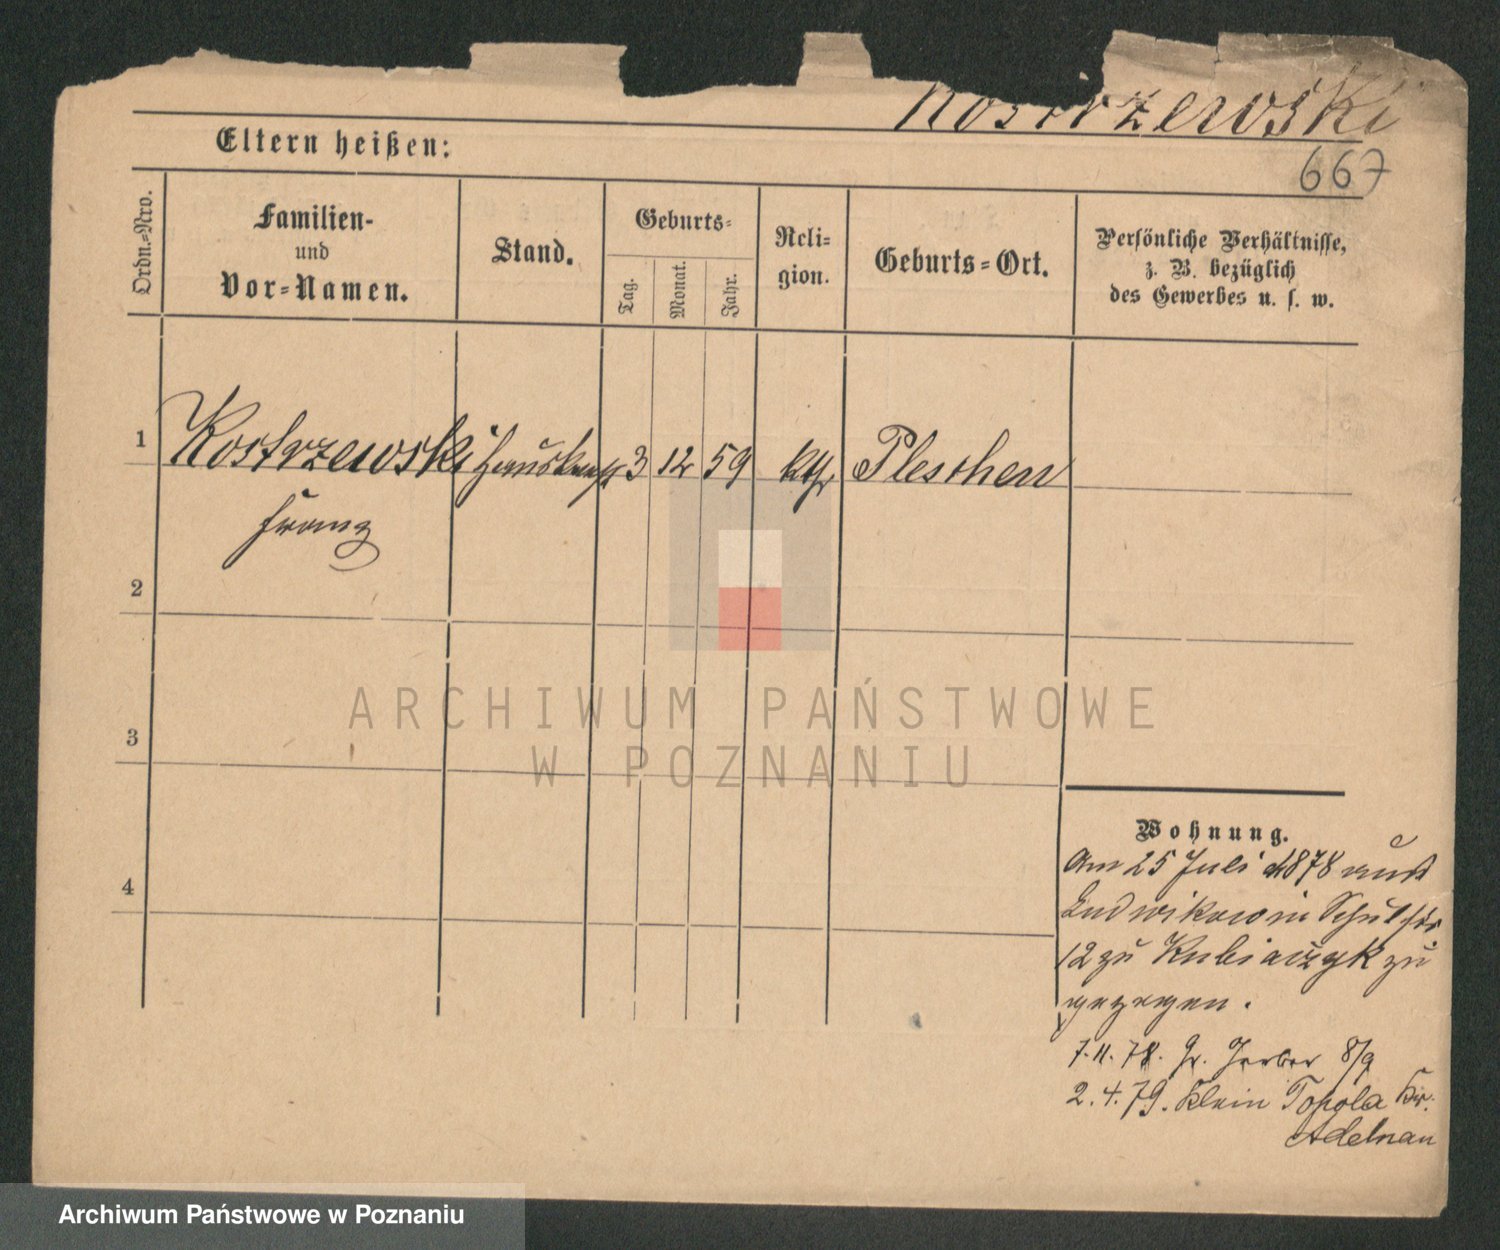 Kostrzewski
667
Eltern heißen:
Ordn.-Nro.
Familien-
und
Vor-Namen.
Stand.
Geburts-
Tag.
Monat.
Jahr.
Reli-
gion.
Geburts-Ort.
Persönliche Verhältnisse,
z. B. bezüglich
des Gewerbes u. s. w.
1 Kostrzewski Hauskn 3 12 59 kth Pleschen
Franz
2
3
4
Wohnung.
Am 25 Juli 1878 aus
Ludwikowin Schulstr
12 zu Kubiaczyk zu
gezogen.
7.11.78. Gr. Gerber 8/9
2.4.79. Klein Topola Kr.
Adelnau
ARCHIWUM PAŃSTWOWE
W POZNANIU
Archiwum Państwowe w Poznaniu